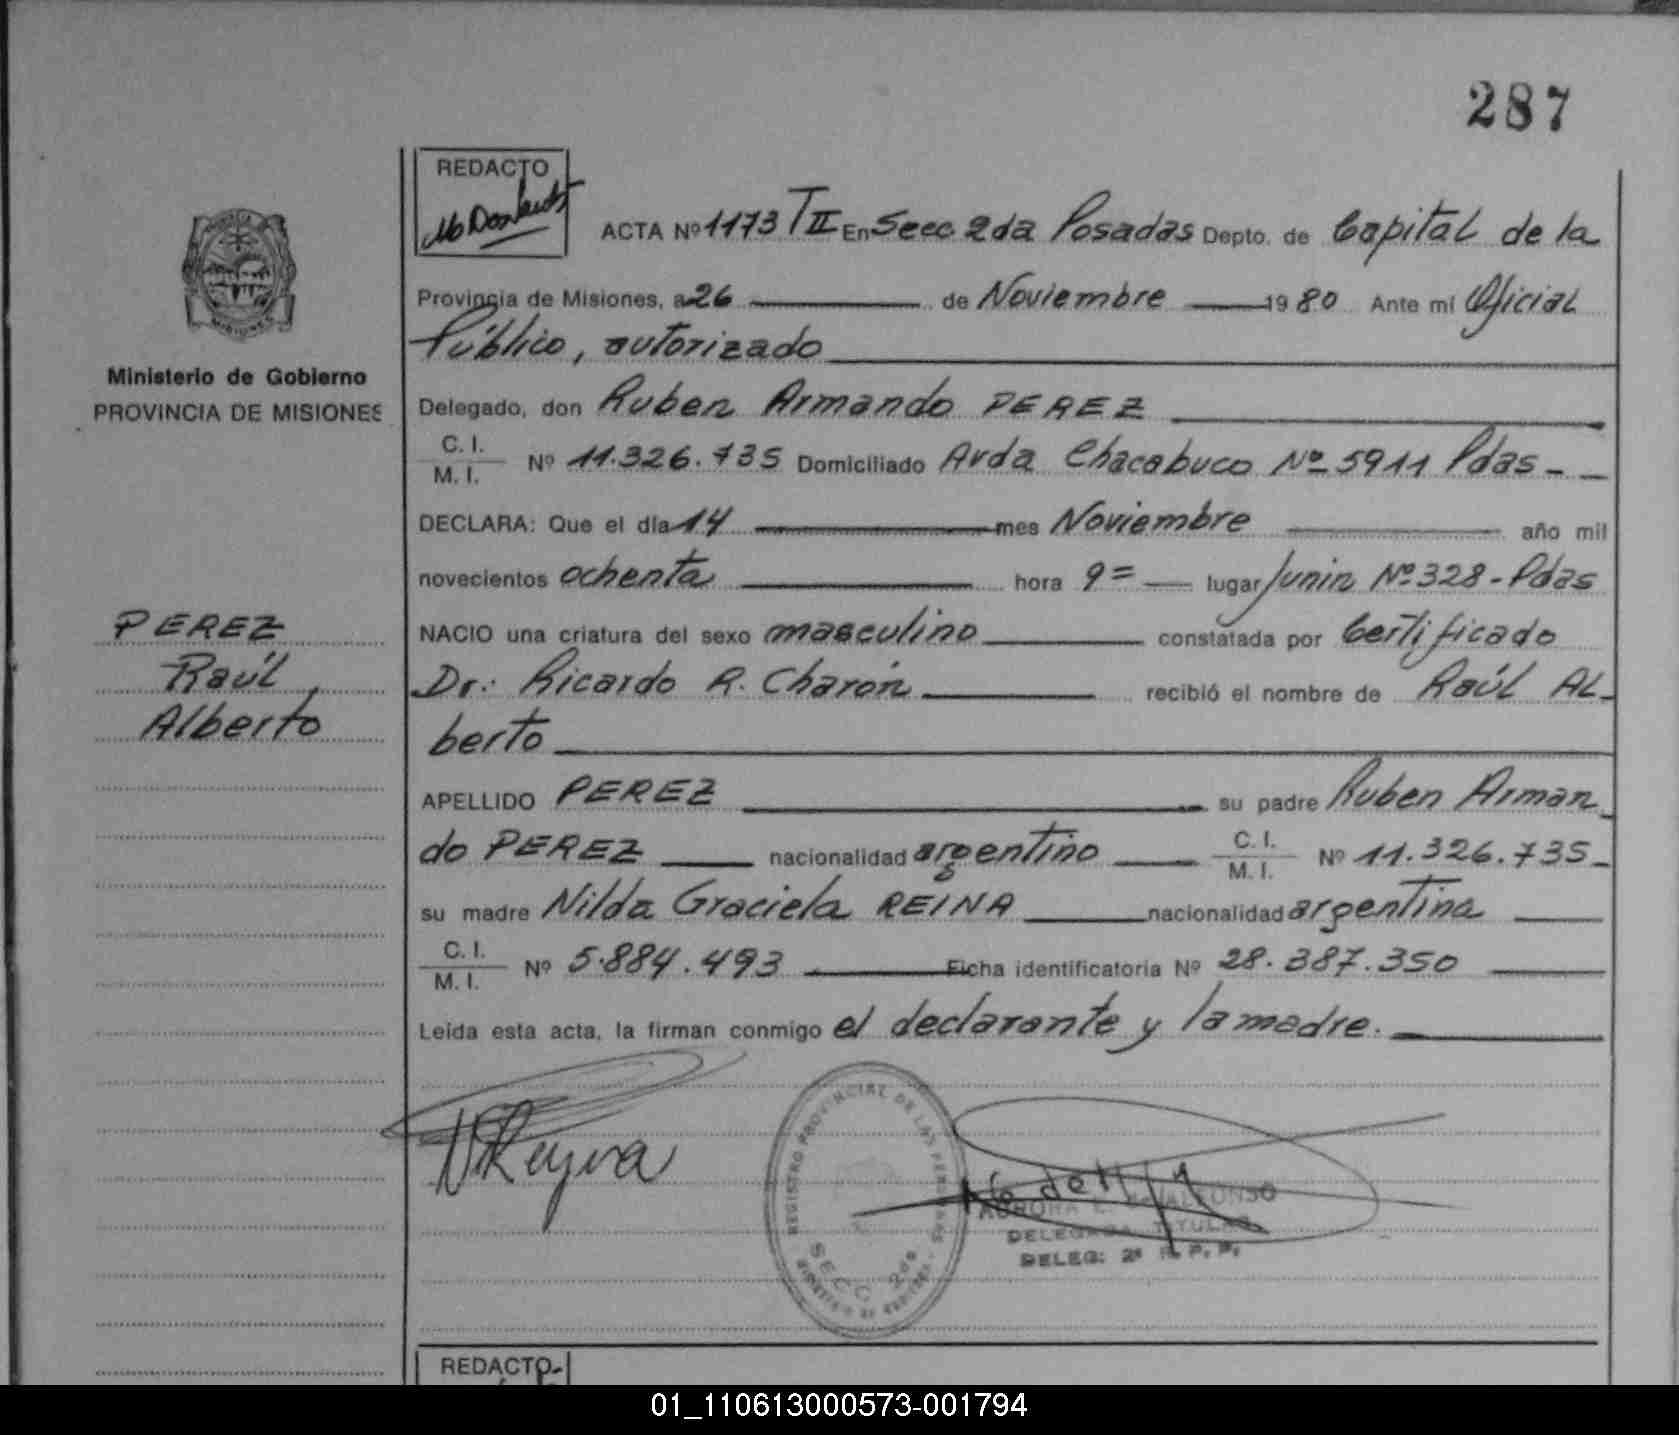 287
REDACTO
ACTA Nº 1173 TII En Secc. 2da Posadas Depto. de Capital de la
Provincia de Misiones, a 26 de Noviembre 1980 Ante mi Oficial
Público, autorizado
Ministerio de Gobierno
PROVINCIA DE MISIONES
Delegado, don Ruben Armando PEREZ
C. I.
M. I. Nº 11.326.735 Domiciliado Avda Chacabuco Nº 5911 Pdas -
DECLARA: Que el día 14 mes Noviembre año mil
novecientos ochenta hora 9= lugar Junin Nº 328 - Pdas
PEREZ
Raúl
Alberto
NACIO una criatura del sexo masculino constatada por Certificado
Dr: Ricardo R. Charón recibió el nombre de Raúl AL
berto
APELLIDO PEREZ su padre Ruben Arman
do PEREZ nacionalidad argentino C. I.
M. I. Nº 11.326.735
su madre Nilda Graciela REINA nacionalidad argentina
C. I.
M. I. Nº 5.884.493 Ficha identificatoria Nº 28.387.350
Leída esta acta, la firman conmigo el declarante y la madre.
NReyna
REGISTRO PROVINCIAL DE LAS PERSONAS
SECC. 2da
DELEGADA TITULAR
DELEG: 2ª R. P. P.
REDACTO
01_110613000573-001794